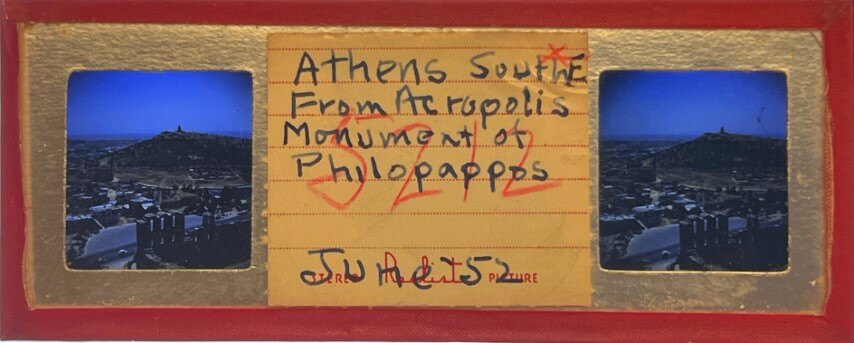 Athens South E
From Acropolis
Monument of
Philopappos
5212
June '52
STEREO Realist PICTURE